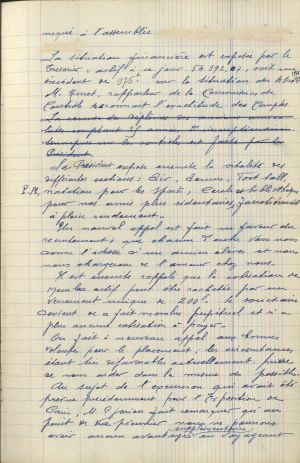 niqué à l'assemblée
La situation financière est exposée par le
Trésorier, actif à ce jour 54.392,07, soit un
excédent de 975f. sur la situation du
M. Huret, rapporteur de la Commission de
Contrôle reconnaît l'exactitude des Comptes
La remise des Diplômes des
comptant 25 années
est faite par le
Président
Le Président expose ensuite la vitalité des
différentes sections : Tir, Tennis, Foot ball,
P.R, natation pour les sports, Cercle et bibliothèque
pour nos amis plus sédentaires, fonctionnent
à plein rendement.
Un nouvel appel est fait en faveur du
recrutement ; que chacun d'entre vous nous
donne l'adresse d'un ancien élève et nous
nous chargeons de l'amener chez nous.
Il est ensuite rappelé que la cotisation de
Membre actif peut être rachetée par un
versement unique de 200f. le sociétaire
devient de ce fait membre perpétuel et n'a
plus aucune cotisation à payer.
On fait à nouveau appel aux bonnes
volontés pour le placement, les circonstances
étant difficiles actuellement, prière
de nous aider dans la mesure du possible.
Au sujet de l'excursion qui avait été
prévue précédemment pour l'Exposition de
Paris, M. fait remarquer qu'au
point de vue pécuniaire nous ne pouvons
supplémentaire
avoir aucun avantage en voyageant